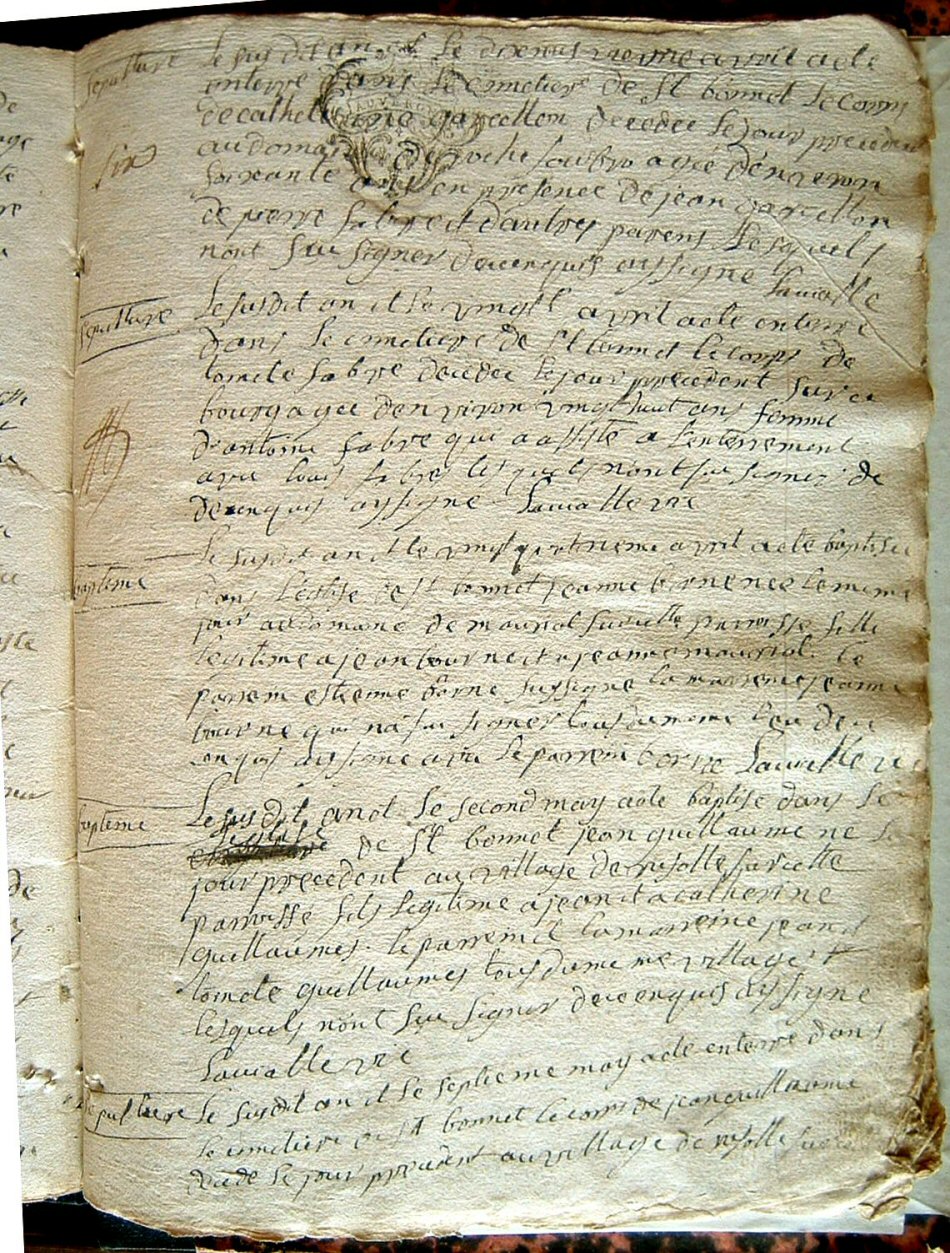 sepulture
le susdit an et le dixneuvieme avril a ete
enterre dans le cimetiere de St bonnet le corps
de catherine garcellon decedee le jour precedent
au domaine de roche agée d'environ
soixante ans en presence de jean garcellon
de pierre fabre et d'autres parens lesquels
nont sçu signer de ce enquis ay signe
sepulture
Le susdit an et le vingt avril a ete enterre
dans le cimetiere de St bonnet le corps de
tomete fabre decedee le jour precedent sur ce
bourg agee denviron vingt huit ans femme
d'antoine fabre qui a assiste a l'enterrement
avec louis fabre lesquels nont sçu signer de
de ce enquis ay signe
baptême
Le susdit an et le vingt quatrieme avril a ete baptisee
dans l'eglise de St bonnet jeanne borne nee le meme
jour au domaine de mauriol sur cette parroisse fille
legitime a jean bourne et a jeanne mauriol. le
parrein estienne borne sussigne la marreine jeanne
bourne qui na sçu signer tous du meme lieu de ce
enquis ay signe avec le parrein borne
baptême
Le susdit an et le second may a ete baptise dans le
l'eglise de St bonnet jean guillaume ne le
jour precedent au village de sur cette
parroisse fils legitime a jean et a catherine
guillaumes. le parrein et la marreine jean et
tomete guillaumes tous du meme village et
lesquels nont sçu signer de ce enquis ay signe
sepulture
le susdit an et le septieme may a ete enterre dans
le cimetiere de St bonnet le corps de jean guillaume
decede le jour precedent au village de sur cette